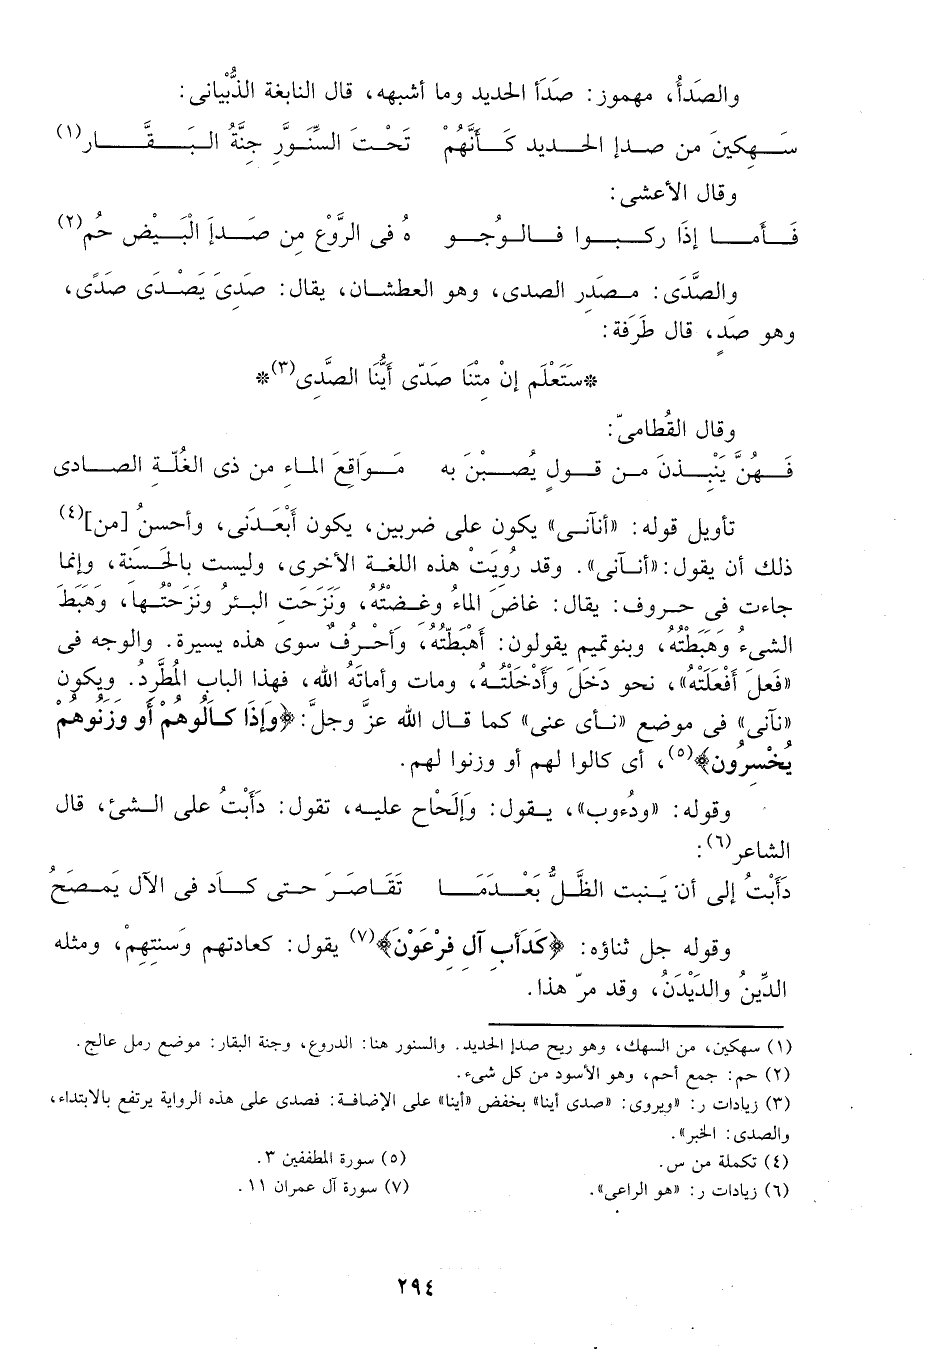 والصَدَأُ، مهموز: صَدَأ الحديد وما أشبهه، قال النابغة الذُّبْيانى:
سَـهِكِينَ من صـدإ الحـديد كَـأَنَّهُمْ تَحْـتَ السَّنَوَّرِ جِنَّةُ الـبَـقَّـارِ(١)
وقال الأعشى:
فَـأمـا إذَا ركـبـوا فـالـوُجـو هُ فى الرَّوْعِ مِن صَـدإ الْبَـيْضِ حُم(٢)
والصَّدَى: مـصدر الصدى، وهو العطشان، يقال: صَدِىَ يَصْـدَى صَدًى،
وهو صَدٍ، قال طَرَفة:
*سَتَعْلَم إنْ مِتْنَا صَدًى أَيُّنَا الصَّدِى(٣)*
وقال القُطامىّ:
فَـهُنَّ يَنْبِـذْنَ مـن قـولٍ يُصِـبْنَ به مَـواقِعَ المـاء من ذى الغُلّـةِ الصـادى
تأويل قوله: «أنآنـى» يكون على ضربين، يكون أَبْعَـدَنى، وأحسنُ [من](٤)
ذلك أن يقول: «أنـآنى». وقد رُوِيَتْ هذه اللغـة الأخرى، وليست بالحَـسَنة، وإنما
جاءت فى حـروف: يقال: غاضَ المَاءُ وغِـضْتُهُ، ونَزَحَتِ البـئرُ ونَزَحْتُـها، وهَبَطَ
الشىءُ وهَبَطْتُهُ، وبنو تميم يقولون: أَهْبَطْتُهُ، وأَحْـرفٌ سوى هذه يسيرة. والوجه فى
«فَعلَ أَفْعَلَتْهُ»، نحو دَخَلَ وأَدْخَلْتُـهُ، ومات وأماتَهُ الله، فهذا الباب المُطَّرِدُ. ويكون
«نآنى» فى موضع «نـأى عنى» كما قـال الله عزَّ وجلَّ: ﴿وَإِذَا كَالُوهُمْ أَو وَزَنُوهُمْ
يُخْسِرُون﴾(٥)، أى كالوا لهم أو وزنوا لهم.
وقوله: «ودُءوب»، يـقول: وَإلَحْاح عليـه، تقول: دَأَبْتُ على الـشئ، قال
الشاعر(٦):
دَأَبْتُ إلى أن يَـنبت الظِّـلُّ بَعْـدَمَـا تَقَـاصَـرَ حـتى كـادَ فى الآل يَمـصَحُ
وقوله جل ثناؤه: ﴿كَدَأْبِ آلِ فِرْعَوْنَ﴾(٧) يقول: كعادتهم وسَنتِهِمْ، ومثله
الدِّينُ والدَيْدَنُ، وقد مرّ هذا.
(١) سهكين، من السهك، وهو ريح صدإ الحديد. والسنور هنا: الدروع، وجنة البقار: موضع رمل عالج.
(٢) حم: جمع أحم، وهو الأسود من كل شىء.
(٣) زيادات ر: «ويروى: «صدى أينا» بخفض «أينا» على الإضافـة: فصدى على هذه الرواية يرتفع بالابتداء،
والصدى: الخبر».
(٤) تكملة من س.
(٥) سورة المطففين ٣.
(٦) زيادات ر: «هو الراعى».
(٧) سورة آل عمران ١١.
٢٩٤